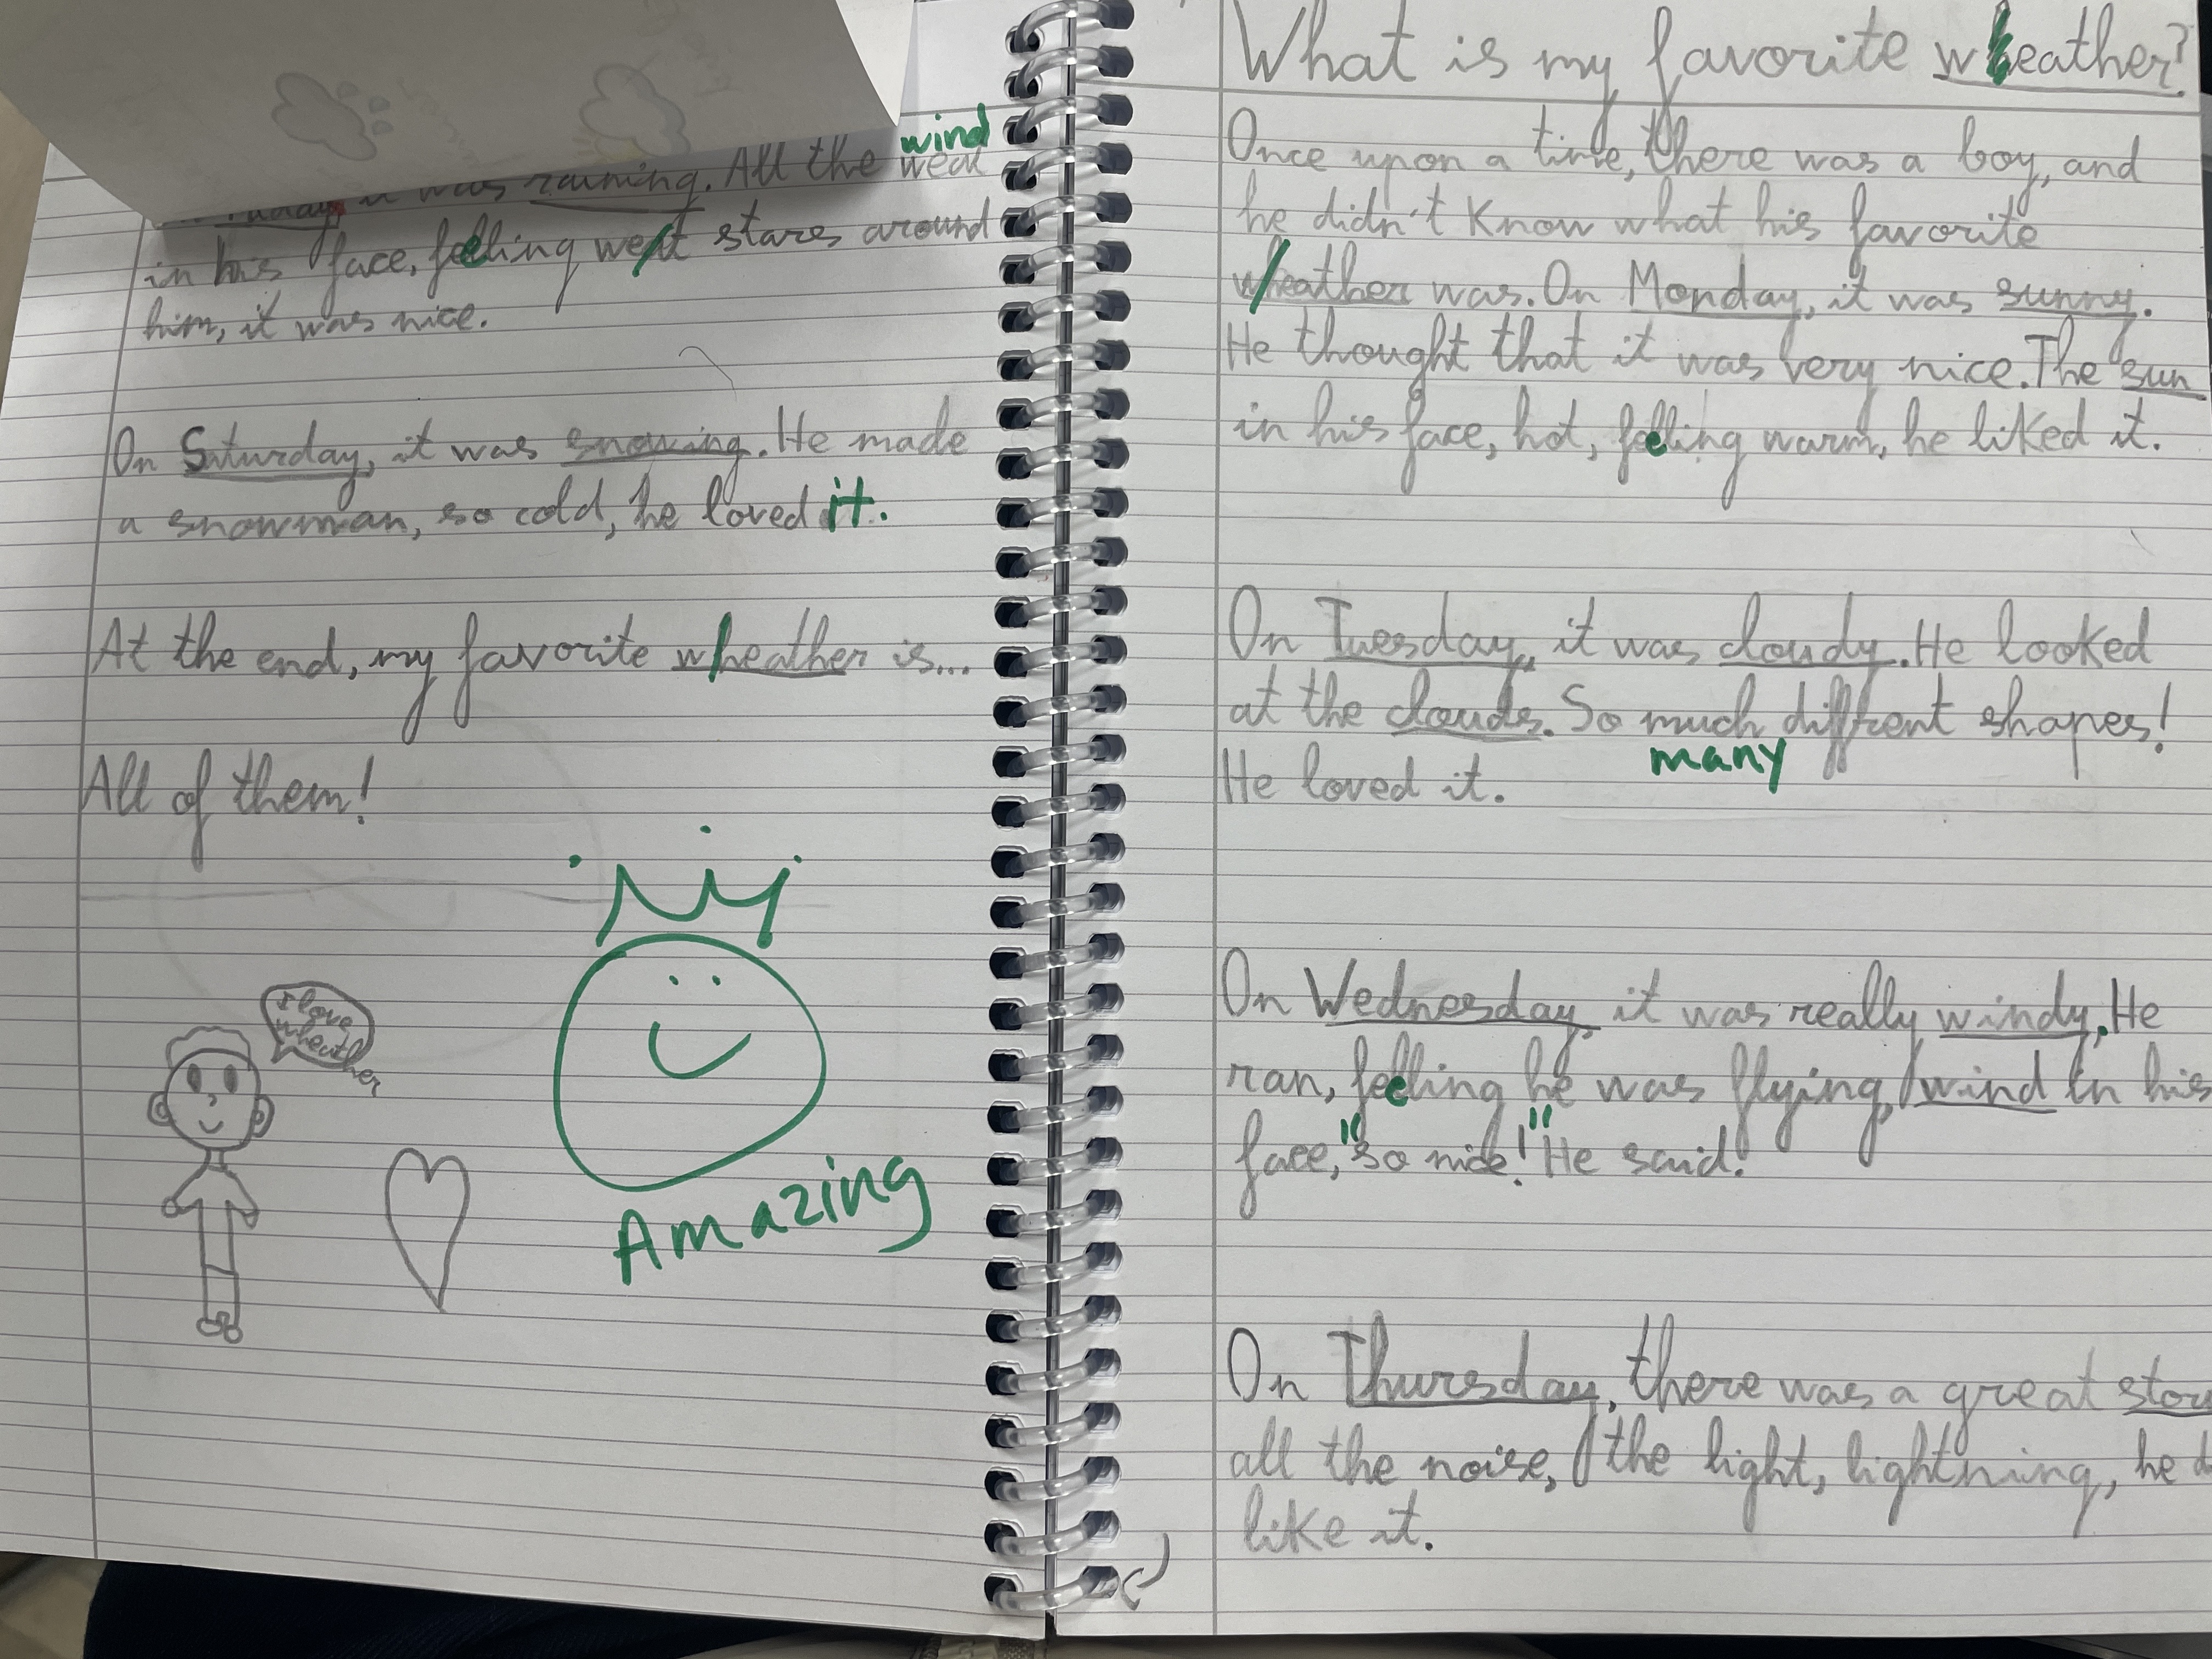 What is my favorite wheather?
Once upon a time, there was a boy, and
he didn't know what his favorite
wheather was. On Monday, it was sunny.
He thought that it was very nice. The sun
in his face, hot, feeling warm, he liked it.
On Tuesday, it was cloudy. He looked
at the clouds. So much diffrent shapes!
many
He loved it.
On Wednesday, it was really windy. He
ran, feeling he was flying, wind in his
face, "so nice!" He said.
On Thursday, there was a great
all the noise, the light, lightning, he
like it.
wind
it was raining. All the
in his face, feeling weat stars around
him, it was nice.
On Saturday, it was snowing. He made
a snowman, so cold, he loved it.
At the end, my favorite wheather is...
All of them!
I love
wheather
Amazing